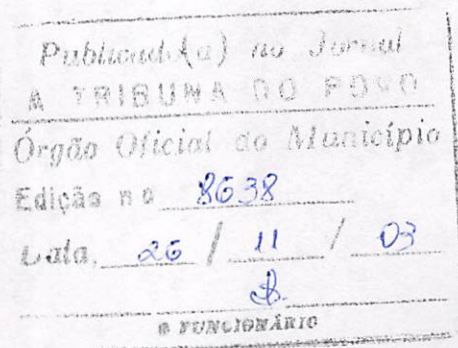 Publicado(a) no Jornal
A TRIBUNA DO POVO
Órgão Oficial do Município
Edição nº 8638
Data, 26 / 11 / 03
O FUNCIONÁRIO